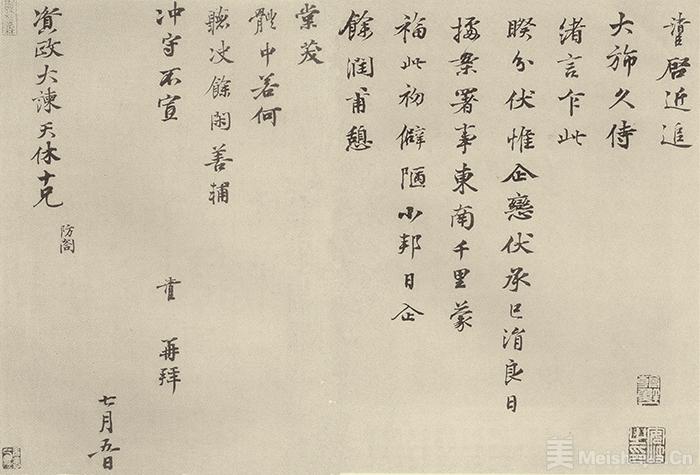 啓近追
大旆久侍
緒言乍此
睽分伏惟企戀伏承已涓良日
據案署事東南千里蒙
福此初僻陋小邦日企
餘潤甫憩
棠茂
體中若何
聽決餘閑善輔
沖守不宣
再拜
資政大諫天休十兄
防閤
七月五日
美 Meishu.us.Cn